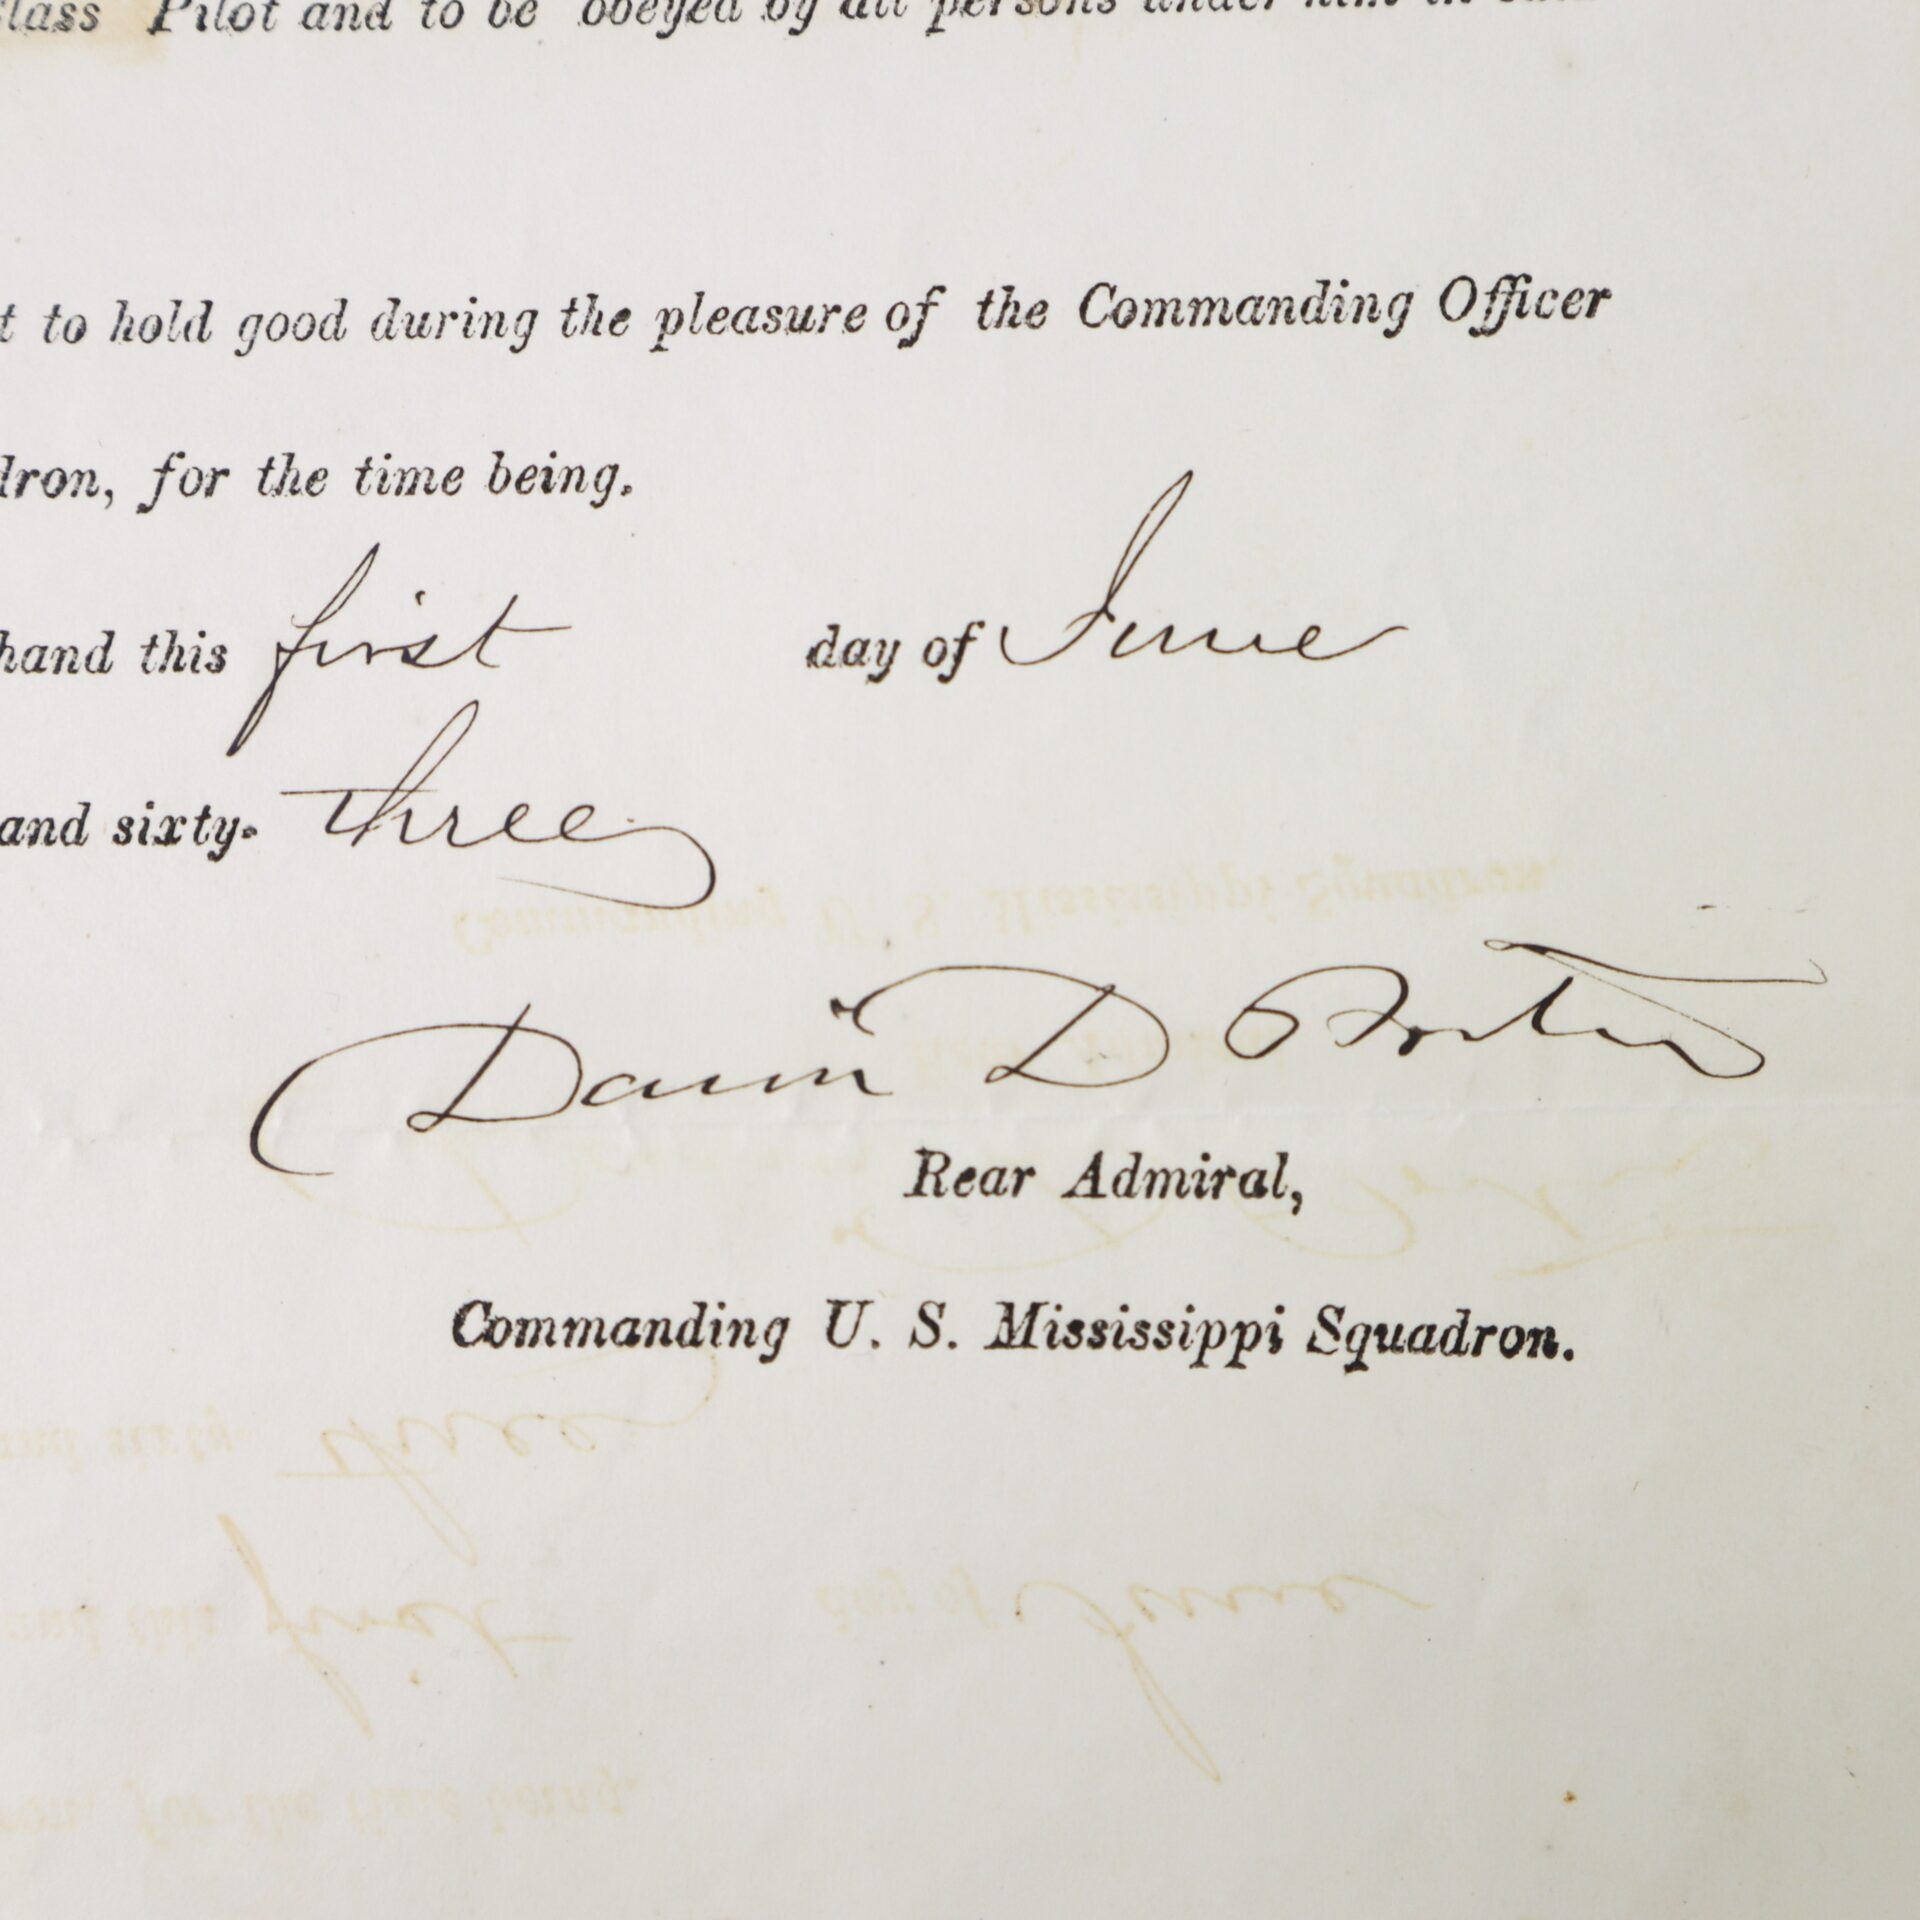 lass Pilot and to be obeyed by all persons under him in
t to hold good during the pleasure of the Commanding Officer
dron, for the time being.
hand this first day of June
and sixty- three
David D Porter
Rear Admiral,
Commanding U. S. Mississippi Squadron.